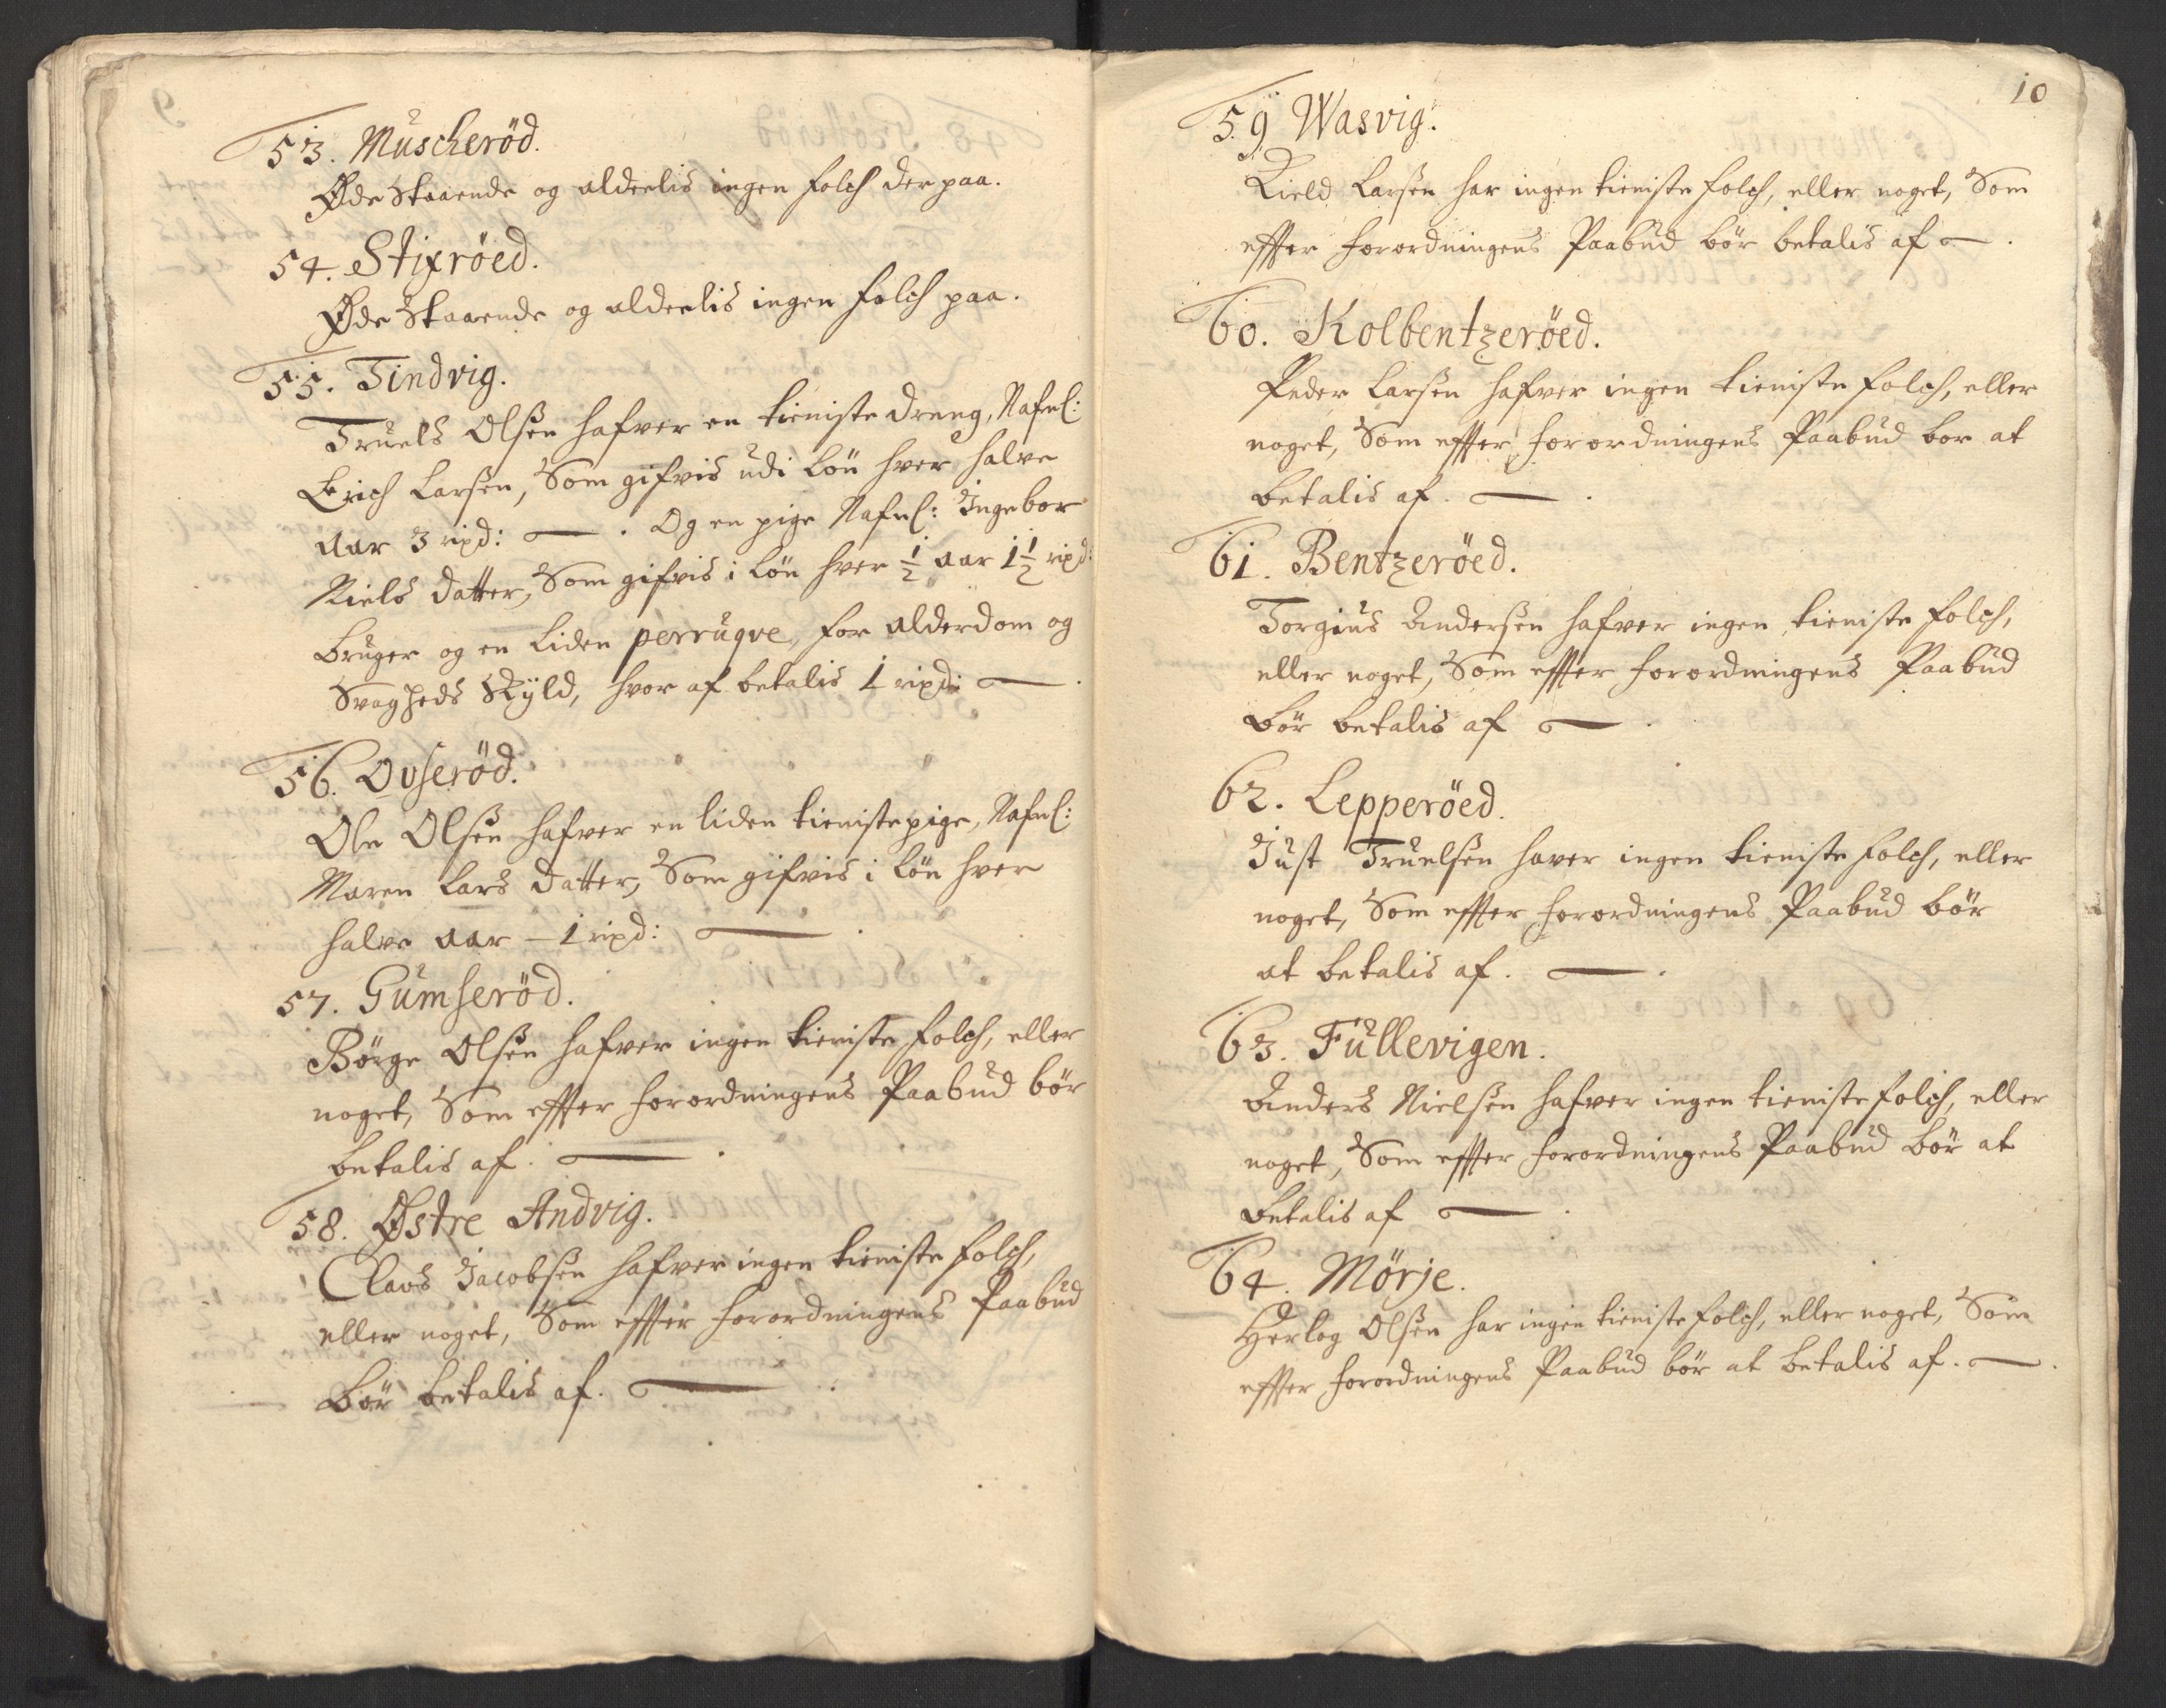 53. Muscheröd.
Øde Staaende og alderlis ingen folch der paa.
54. Stixröed.
Øde Staaende og alderlis ingen folch paa.
55. Tindvig.
Truels Olsen hafver en tieniste dreng, Nafnl:
Erich Larsen, Som gifvis udi Løn hver halve
Aar 3 rixd: — . Og en pige Nafnl: Ingebor
Niels datter, Som gifvis i Løn hver ½ aar 1½ rixd:
bruger og en liden perruqve, for alderdom og
Svagheds Skyld, hvor af betalis 1 rixd: — .
56. Ovserød.
Ole Olsen hafver en liden tienistepige, Nafnl:
Maren Lars datter, Som gifvis i Løn hver
halve aar – 1 rixd: — .
57. Gumseröd.
Börge Olsen hafver ingen tieniste folch, eller
noget, Som effter forordningens Paabud bör
betalis af. — .
58. Østre Andvig.
Claus Jacobsen hafver ingen tieniste folch,
eller noget, Som effter forordningens Paabud
bör betalis af. — .
10
59 Wasvig.
Kield Larsen har ingen tieniste folch, eller noget, Som
effter forordningens Paabud bör betalis af — .
60. Kolbentzeröed.
Peder Larsen hafver ingen tieniste folch, eller
noget, Som effter forordningens Paabud bor at
betalis af. — .
61. Bentzeröed.
Torgius Andersen hafver ingen tieniste folch,
eller noget, Som effter forordningens Paabud
bör betalis af — .
62. Lepperöed.
Just Truelsen haver ingen tieniste folch, eller
noget, Som effter forordningens Paabud bör
at betalis af. — .
63. Füllevigen.
Anders Nielsen hafver ingen tieniste folch, eller
noget, Som effter forordningens Paabud bör at
betalis af — .
64. Mörje.
Herlog Olsen har ingen tieniste folch, eller noget, Som
effter forordningens Paabud bör at betalis af. — .